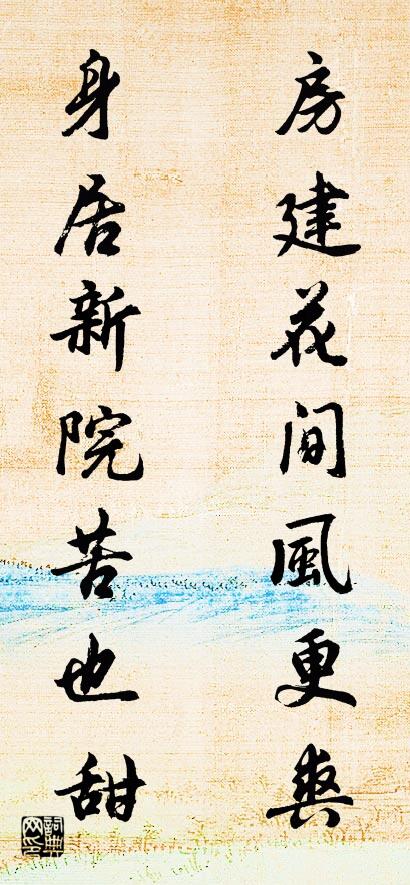 房建花间風更爽
身居新院苦也甜
詞典网印